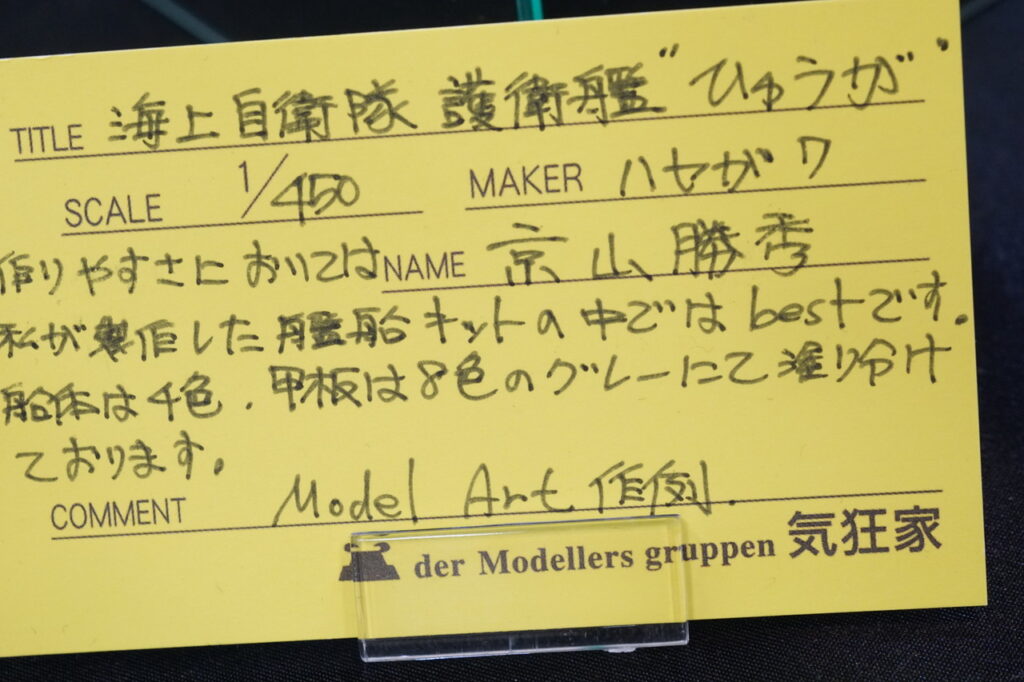 TITLE 海上自衛隊 護衛艦 "ひゅうが"
SCALE 1/450 MAKER ハセガワ
NAME 京山勝秀
作りやすさにおいては
私が製作した艦船キットの中ではbestです。
船体は4色、甲板は8色のグレーにて塗り分け
ております。
COMMENT Model Art 作例.
der Modellers gruppen 気狂家